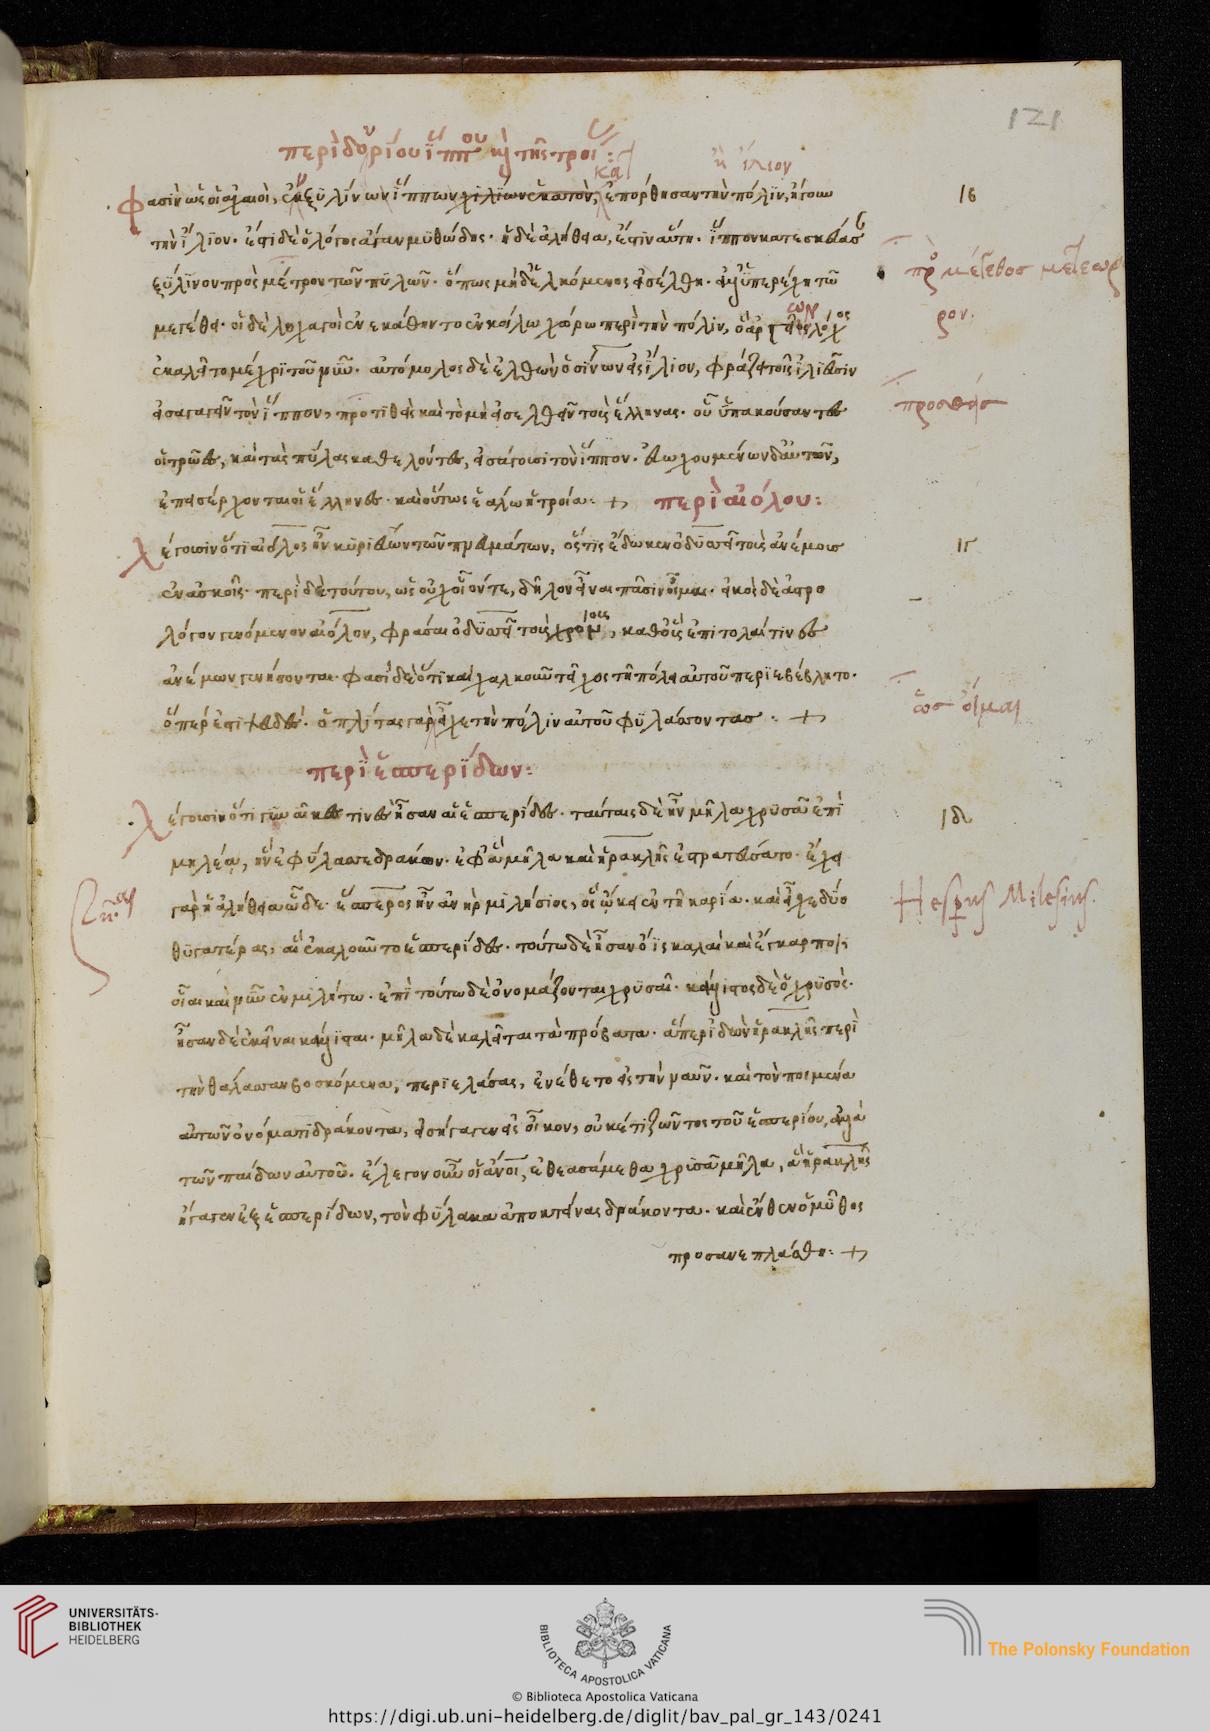 121
περὶ δουρίου ἵππου καὶ τῆς τροί :
κα
ἢ εἷλεον
φασὶν ὡς οἱ ἀχαιοὶ, ἐν ξυλίνων ἵππων χιλίων ἑκατὸν, ἐπόρθησαν τὴν πόλιν, ἤτοι
ιβ
τὴν ἴλιον. ἔστι δὲ ὁ λόγος ἄγαν μυθώδης. ἡ δὲ ἀλήθεια, ἔστιν αὕτη. ἵππον κατεσκεύασ
ξύλινον πρὸς μέτρον τῶν πυλῶν. ὅπως μὴ δὲ ἑλκόμενος εἰσέλθη. ἀλλ' ὑπερέχη τῶ
πρ μέγεθος μετεωρ
μεγέθει. οἱ δὲ λοχαγοὶ ἐνεκάθηντο ἐν κοίλω χώρω περὶ τὴν πόλιν, ὃ ἀργείων λόχος
ρον.
ἐκαλεῖτο μέχρι τοῦ νῦν. αὐτόμολος δὲ ἐλθὼν ὁ σίνων εἰς ἴλιον, φράζει τοῖς ἰλιεῦσιν
εἰσαγαγεῖν τὸν ἵππον, προτιθεὶς καὶ τὸ μὴ εἰσελθεῖν τοὺς ἕλληνας. οὗ ὑπακούσαντες
προσθείσ
οἱ τρῶες, καὶ τὰς πύλας καθελόντες, εἰσάγουσι τὸν ἵππον. εὐωχουμένων δ' αὐτῶν,
ἐπεισέρχονται οἱ ἕλληνες. καὶ οὕτως ἑάλω ἡ τροία: + περὶ αἰόλου:
λέγουσιν ὅτι αἴολος ἦν κυριεύων τῶν πνευμάτων, ὅστις ἔδωκεν ὀδυσσεῖ τοὺς ἀνέμους
ιγ
ἐν ἀσκοῖς. περὶ δὲ τούτου, ὡς οὐχ οἷόν τε, δῆλον εἶναι πᾶσιν οἶμαι. εἰκὸς δὲ ἀστρο
λόγον γενόμενον αἴολον, φράσαι ὀδυσσεῖ τοὺς χρόνους, καθ' οὓς ἐπιτολαί τινες
ἀνέμων γενήσονται. φασὶ δὲ ὅτι καὶ χαλκοῦν τεῖχος τῆ πόλει αὐτοῦ περιεβέβλητο.
ὅπερ ἐστὶ ψευδές. ὁπλίτας γὰρ εἶχε τὴν πόλιν αὐτοῦ φυλάσσοντας : +
ὡς οἶμαι
περὶ ἑσπερίδων:
λέγουσιν ὅτι γυναῖκες τινὲς ἦσαν αἱ ἑσπερίδες. ταύταις δὲ ἦν μῆλα χρυσᾶ ἐπὶ
ιδ
μηλέας, ἣν ἐφύλασσε δράκων. ἐφ' ἃ μῆλα καὶ ἡρακλῆς ἐστρατεύσατο. ἔχει
γὰρ ἡ ἀλήθεια ὧδε. ἕσπερος ἦν ἀνὴρ μιλήσιος, ὃς ᾤκει ἐν τῆ καρία. καὶ εἶχε δύο
Hesperus Milesius.
θυγατέρας, αἳ ἐκαλοῦντο ἑσπερίδες. τούτω δὲ ἦσαν ὄϊς καλαὶ καὶ εὔκαρποι,
οἷαι καὶ νῦν ἐν μιλήτω. ἐπὶ τούτω δὲ ὀνομάζονται χρυσαῖ. κάλλιστος δὲ ὁ χρυσὸς.
ἦσαν δὲ ἐκεῖναι κάλλισται. μῆλα δὲ καλεῖται τὰ πρόβατα. ἅπερ ἰδὼν ἡρακλῆς περὶ
τὴν θάλασσαν βοσκόμενα, περιελάσας, ἐνέθετο εἰς τὴν ναῦν. καὶ τὸν ποιμένα
αὐτῶν ὀνόματι δράκοντα, εἰσήγαγεν εἰς οἶκον, οὐκέτι ζῶντος τοῦ ἑσπερίου, ἀλλὰ
τῶν παίδων αὐτοῦ. ἔλεγον οὖν οἱ ἄνοι, ἐθεασάμεθα χρυσᾶ μῆλα, ἃ ἡρακλῆς
ἤγαγεν ἐξ ἑσπερίδων, τὸν φύλακα ἀποκτείνας δράκοντα. καὶ ἔνθεν ὁ μῦθος
προσανεπλάσθη: +
UNIVERSITÄTS-
BIBLIOTHEK
HEIDELBERG
BIBLIOTECA APOSTOLICA VATICANA
The Polonsky Foundation
© Biblioteca Apostolica Vaticana
https://digi.ub.uni-heidelberg.de/diglit/bav_pal_gr_143/0241